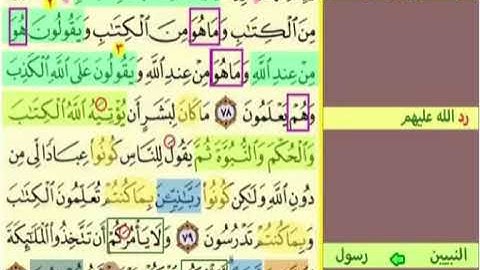 ٢
مِنَ ٱلْكِتَٰبِ وَمَا هُوَ مِنَ ٱلْكِتَٰبِ وَيَقُولُونَ هُوَ
٣
مِنْ عِندِ ٱللَّهِ وَمَا هُوَ مِنْ عِندِ ٱللَّهِ وَيَقُولُونَ عَلَى ٱللَّهِ ٱلْكَذِبَ
وَهُمْ يَعْلَمُونَ ٧٨ مَا كَانَ لِبَشَرٍ أَن يُؤْتِيَهُ ٱللَّهُ ٱلْكِتَٰبَ
وَٱلْحُكْمَ وَٱلنُّبُوَّةَ ثُمَّ يَقُولَ لِلنَّاسِ كُونُوا۟ عِبَادًا لِّى مِن
دُونِ ٱللَّهِ وَلَٰكِن كُونُوا۟ رَبَّٰنِيِّـۧنَ بِمَا كُنتُمْ تُعَلِّمُونَ ٱلْكِتَٰبَ
وَبِمَا كُنتُمْ تَدْرُسُونَ ٧٩ وَلَا يَأْمُرَكُمْ أَن تَتَّخِذُوا۟ ٱلْمَلَٰٓئِكَةَ
رد الله عليهم
النبيين رسول